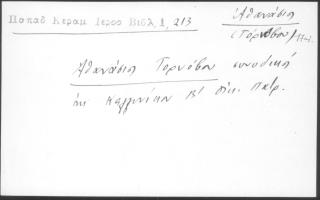 Παπαδ Κεραμ Ιεροσ Βιβλ 1, 213
Ἀθανάσιος
(Τορνόβου)
Ἀθανάσιος Τορνόβου συνοδικὸν
Καλλινίκου Β' οἰκ. Πατρ.